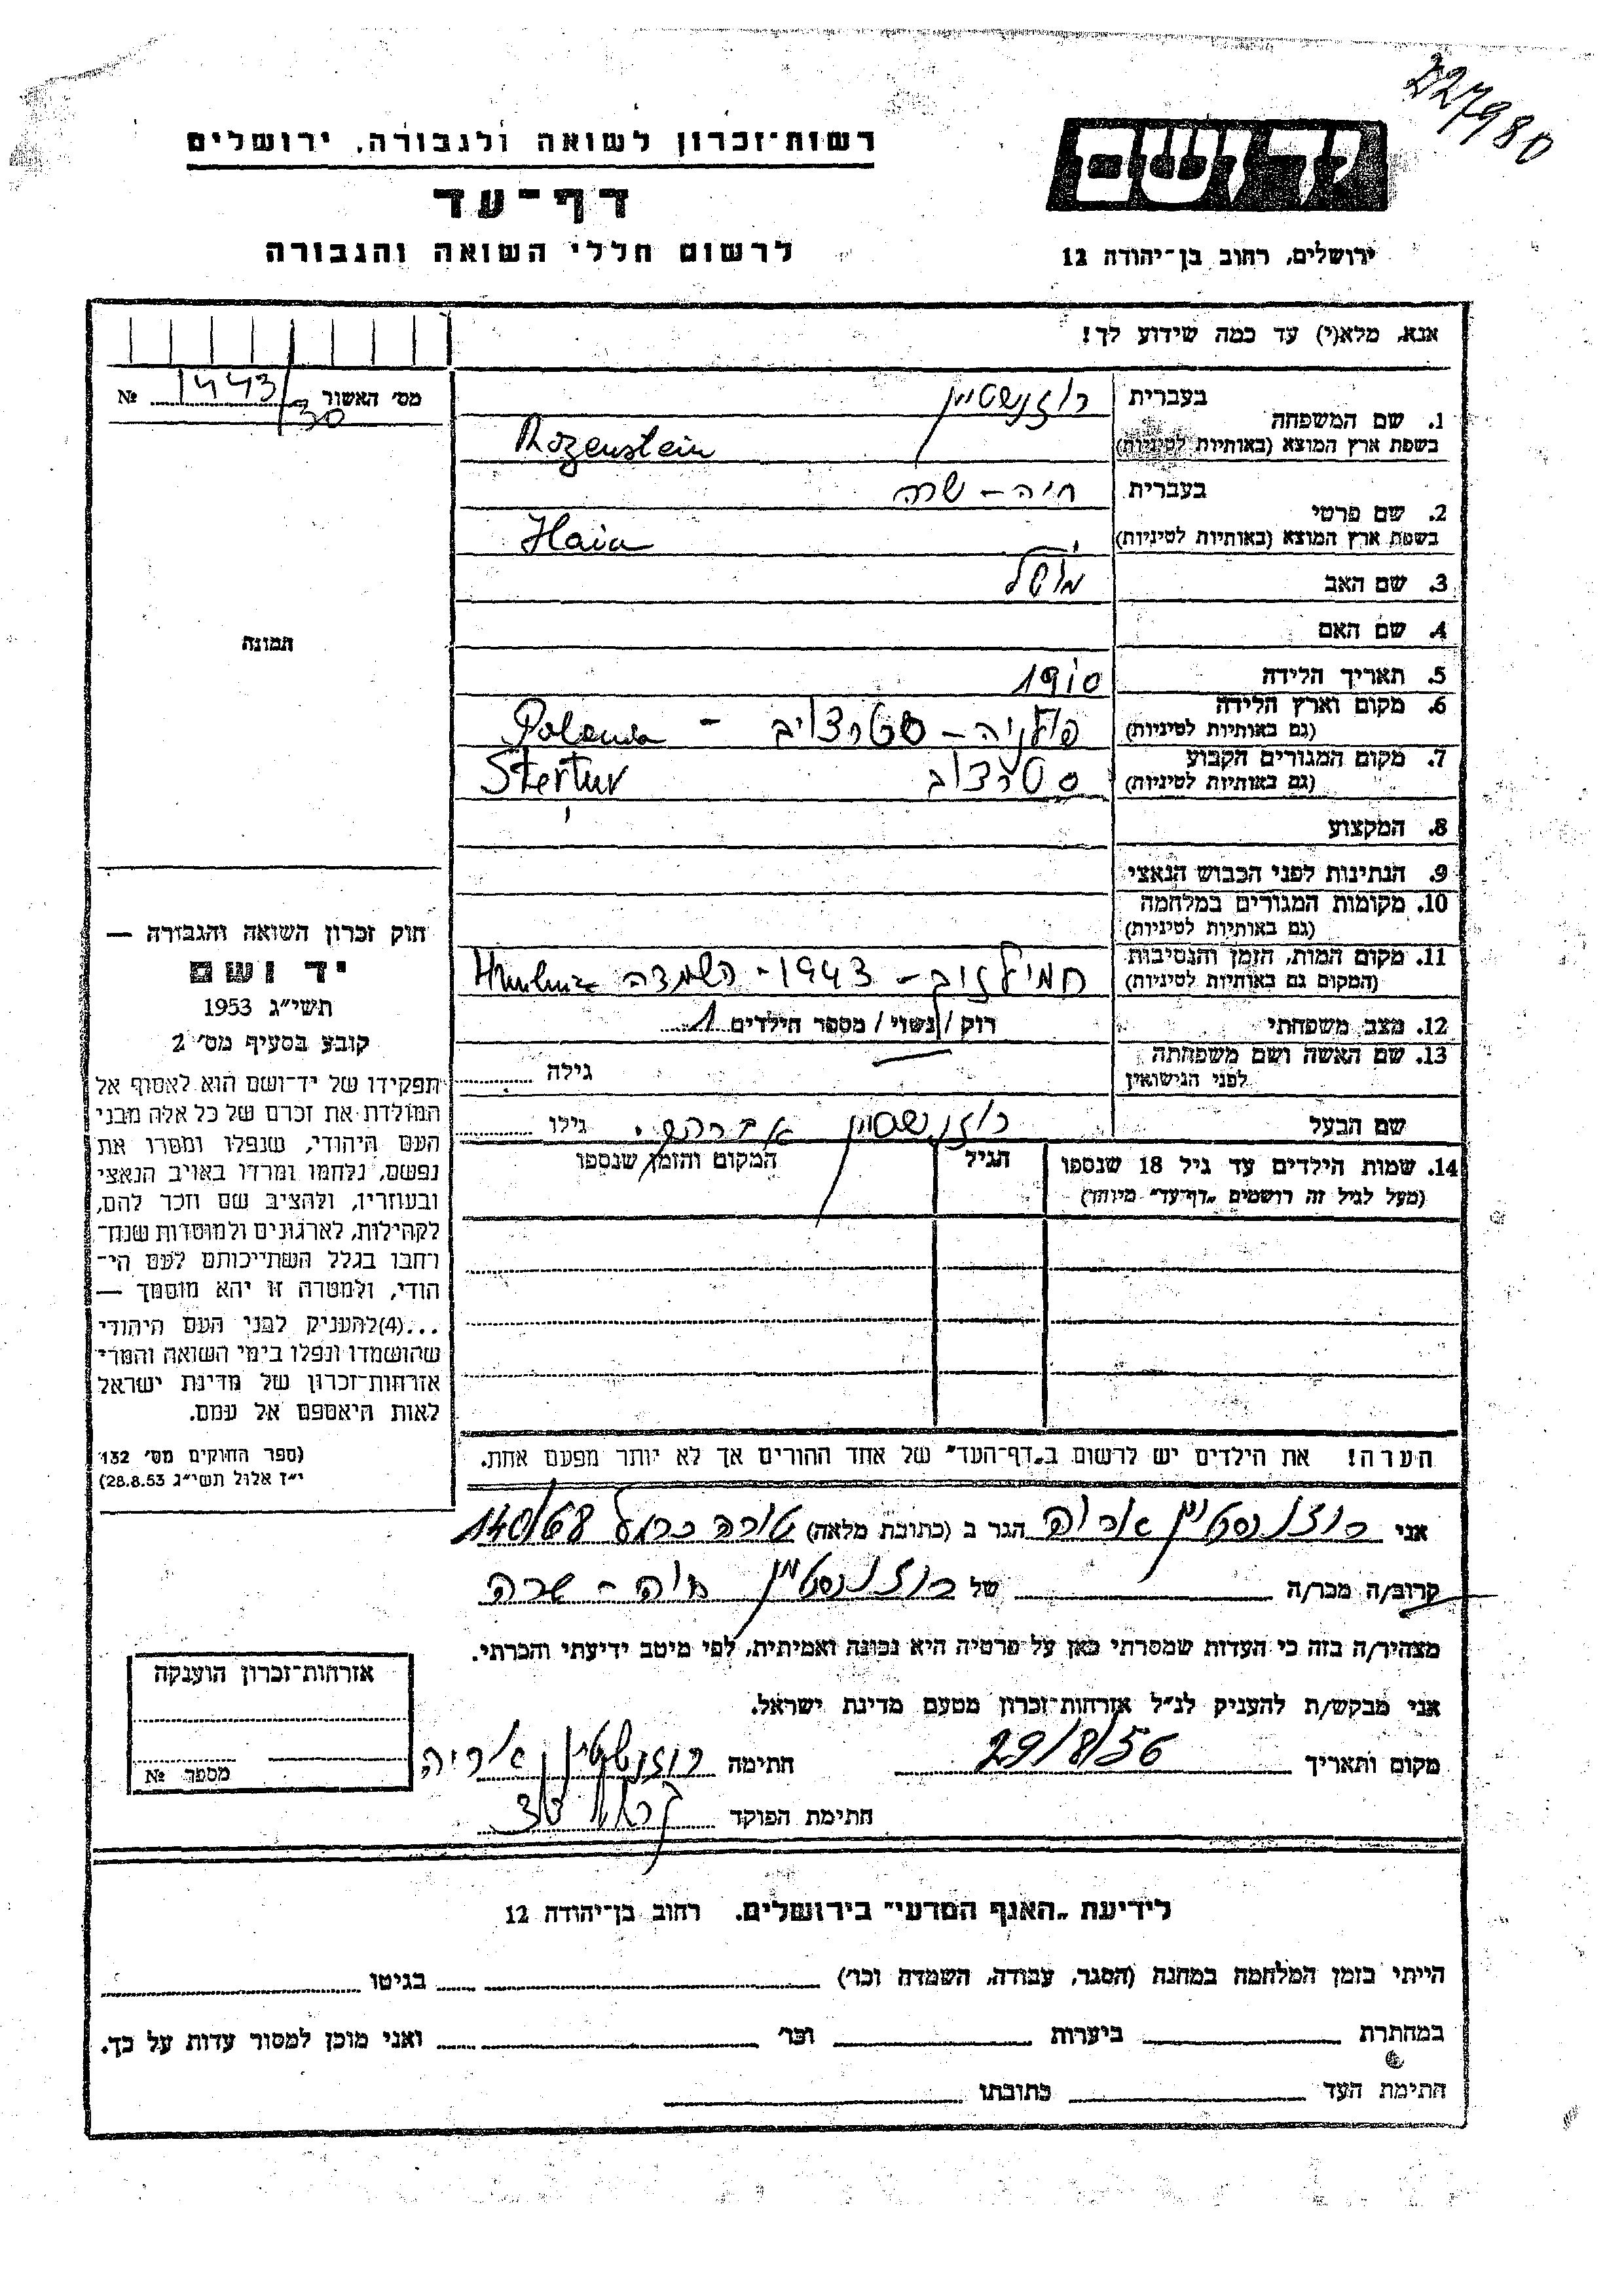 227980
רשות־זכרון לשואה ולגבורה, ירושלים
דף־עד
לרשום חללי השואה והגבורה
יד ושם
ירושלים, רחוב בן־יהודה 12
אנא, מלא(י) עד כמה שידוע לך!
מס׳ האשור 1443/30 №
1. שם המשפחה
בעברית רוזנשטיין
בשפת ארץ המוצא (באותיות לטיניות) Rozenstein
2. שם פרטי
בעברית חיה - שרה
בשפת ארץ המוצא (באותיות לטיניות) Haia
3. שם האב
4. שם האם
5. תאריך הלידה 1910
6. מקום וארץ הלידה
(גם באותיות לטיניות) פולניה -
7. מקום המגורים הקבוע
(גם באותיות לטיניות)
8. המקצוע
9. הנתינות לפני הכבוש הנאצי
10. מקומות המגורים במלחמה
(גם באותיות לטיניות)
11. מקום המות, הזמן והנסיבות
(המקום גם באותיות לטיניות) - 1943 - השמדה
12. מצב משפחתי רוק / נשוי / מספר הילדים 1
13. שם האשה ושם משפחתה
לפני הנישואין גילה
שם הבעל רוזנשטיין אברהם גילו
14. שמות הילדים עד גיל 18 שנספו
(מעל לגיל זה רושמים „דף־עד" מיוחד)
הגיל
המקום והזמן שנספו
הערה! את הילדים יש לרשום ב„דף־העד" של אחד ההורים אך לא יותר מפעם אחת.
תמונה
חוק זכרון השואה והגבורה —
יד ושם
תשי״ג 1953
קובע בסעיף מס׳ 2
תפקידו של יד־ושם הוא לאסוף אל
המולדת את זכרם של כל אלה מבני
העם היהודי, שנפלו ומסרו את
נפשם, נלחמו ומרדו באויב הנאצי
ובעוזריו, ולהציב שם וזכר להם,
לקהילות, לארגונים ולמוסדות שנח־
רחבו בגלל השתייכותם לעם הי־
הודי, ולמטרה זו יהא מוסמך —
...(4)להעניק לבני העם היהודי
שהושמדו ונפלו בימי השואה והמרי
אזרחות־זכרון של מדינת ישראל
לאות היאספם אל עמם.
(ספר החוקים מס׳ 132
י״ז אלול תשי״ג 28.8.53)
אני רוזנסטיין אריה הגר ב (כתובת מלאה) טירה כרמל 140/68
קרוב/ה מכר/ה של רוזנסטיין חיה - שרה
מצהיר/ה בזה כי העדות שמסרתי כאן על פרטיה היא נכונה ואמיתית, לפי מיטב ידיעתי והכרתי.
אני מבקש/ת להעניק לנ״ל אזרחות־זכרון מטעם מדינת ישראל.
מקום ותאריך 29/8/56 חתימה רוזנשטיין אריה
חתימת הפוקד
אזרחות־זכרון הוענקה
מספר №
לידיעת „האגף המדעי" בירושלים. רחוב בן־יהודה 12
הייתי בזמן המלחמה במחנה (הסגר, עבודה, השמדה וכו׳) בגיטו
במחתרת ביערות וכו׳ ואני מוכן למסור עדות על כך.
חתימת העד כתובתו